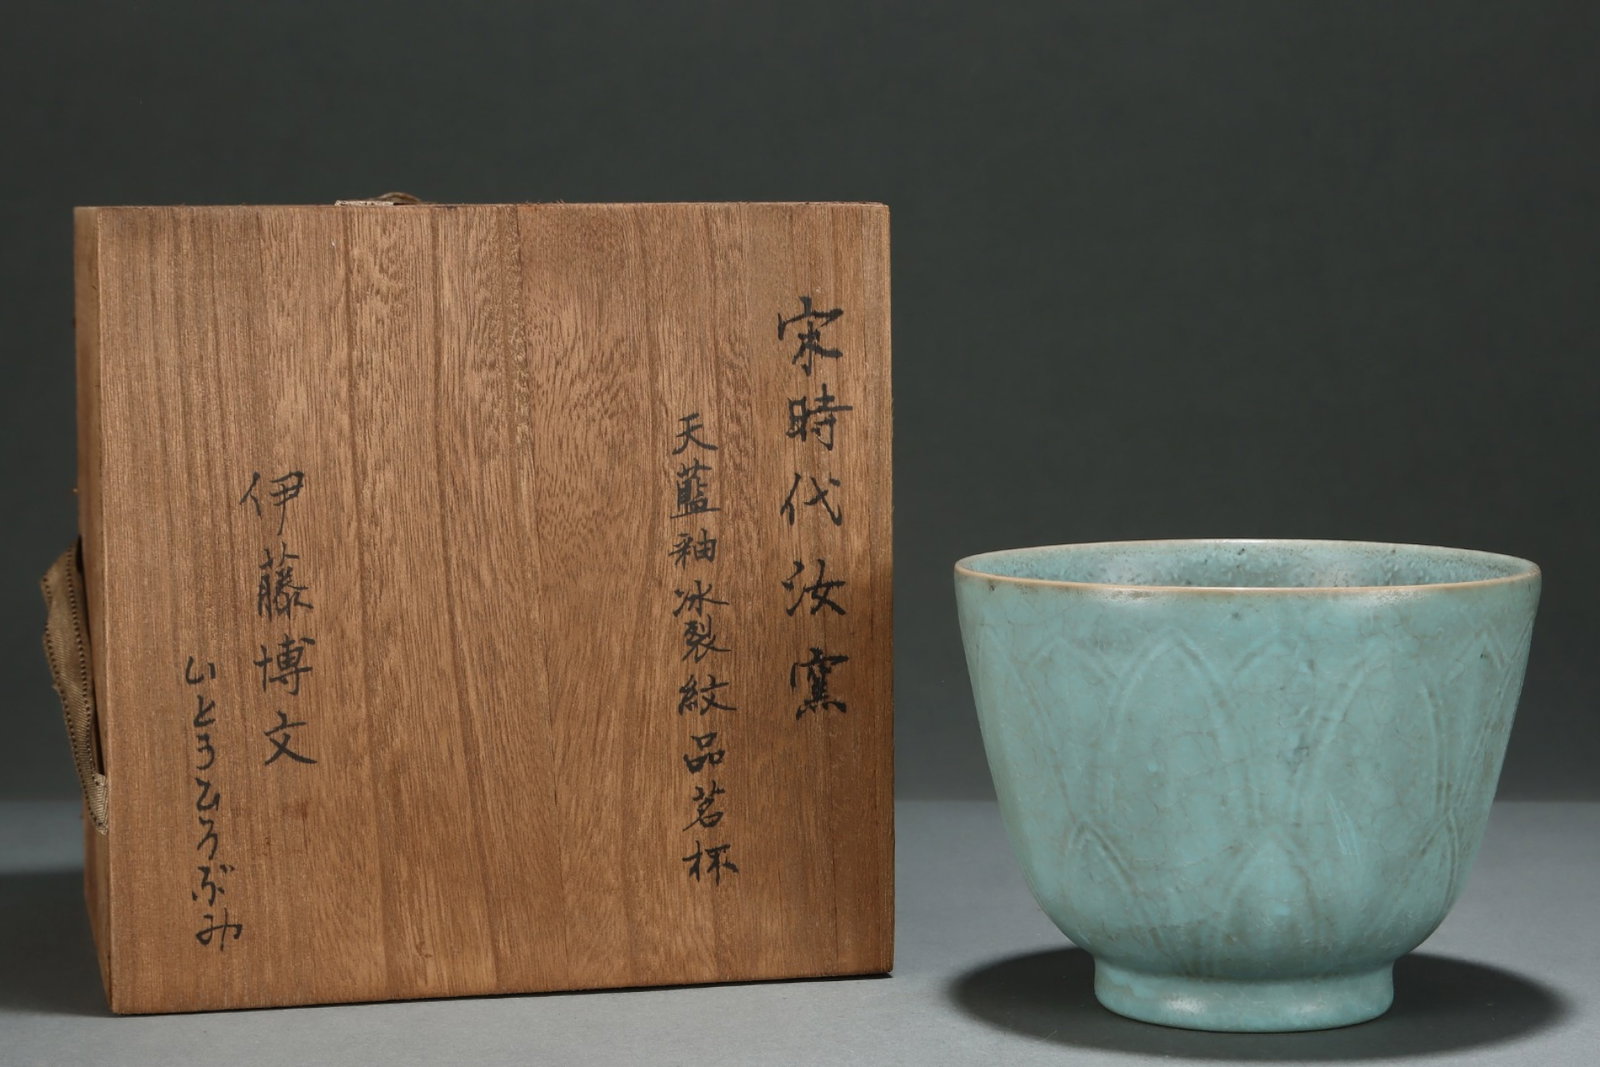 宋時代汝窯
天藍釉冰裂紋品茗杯
伊藤博文
いとうひろぶみ